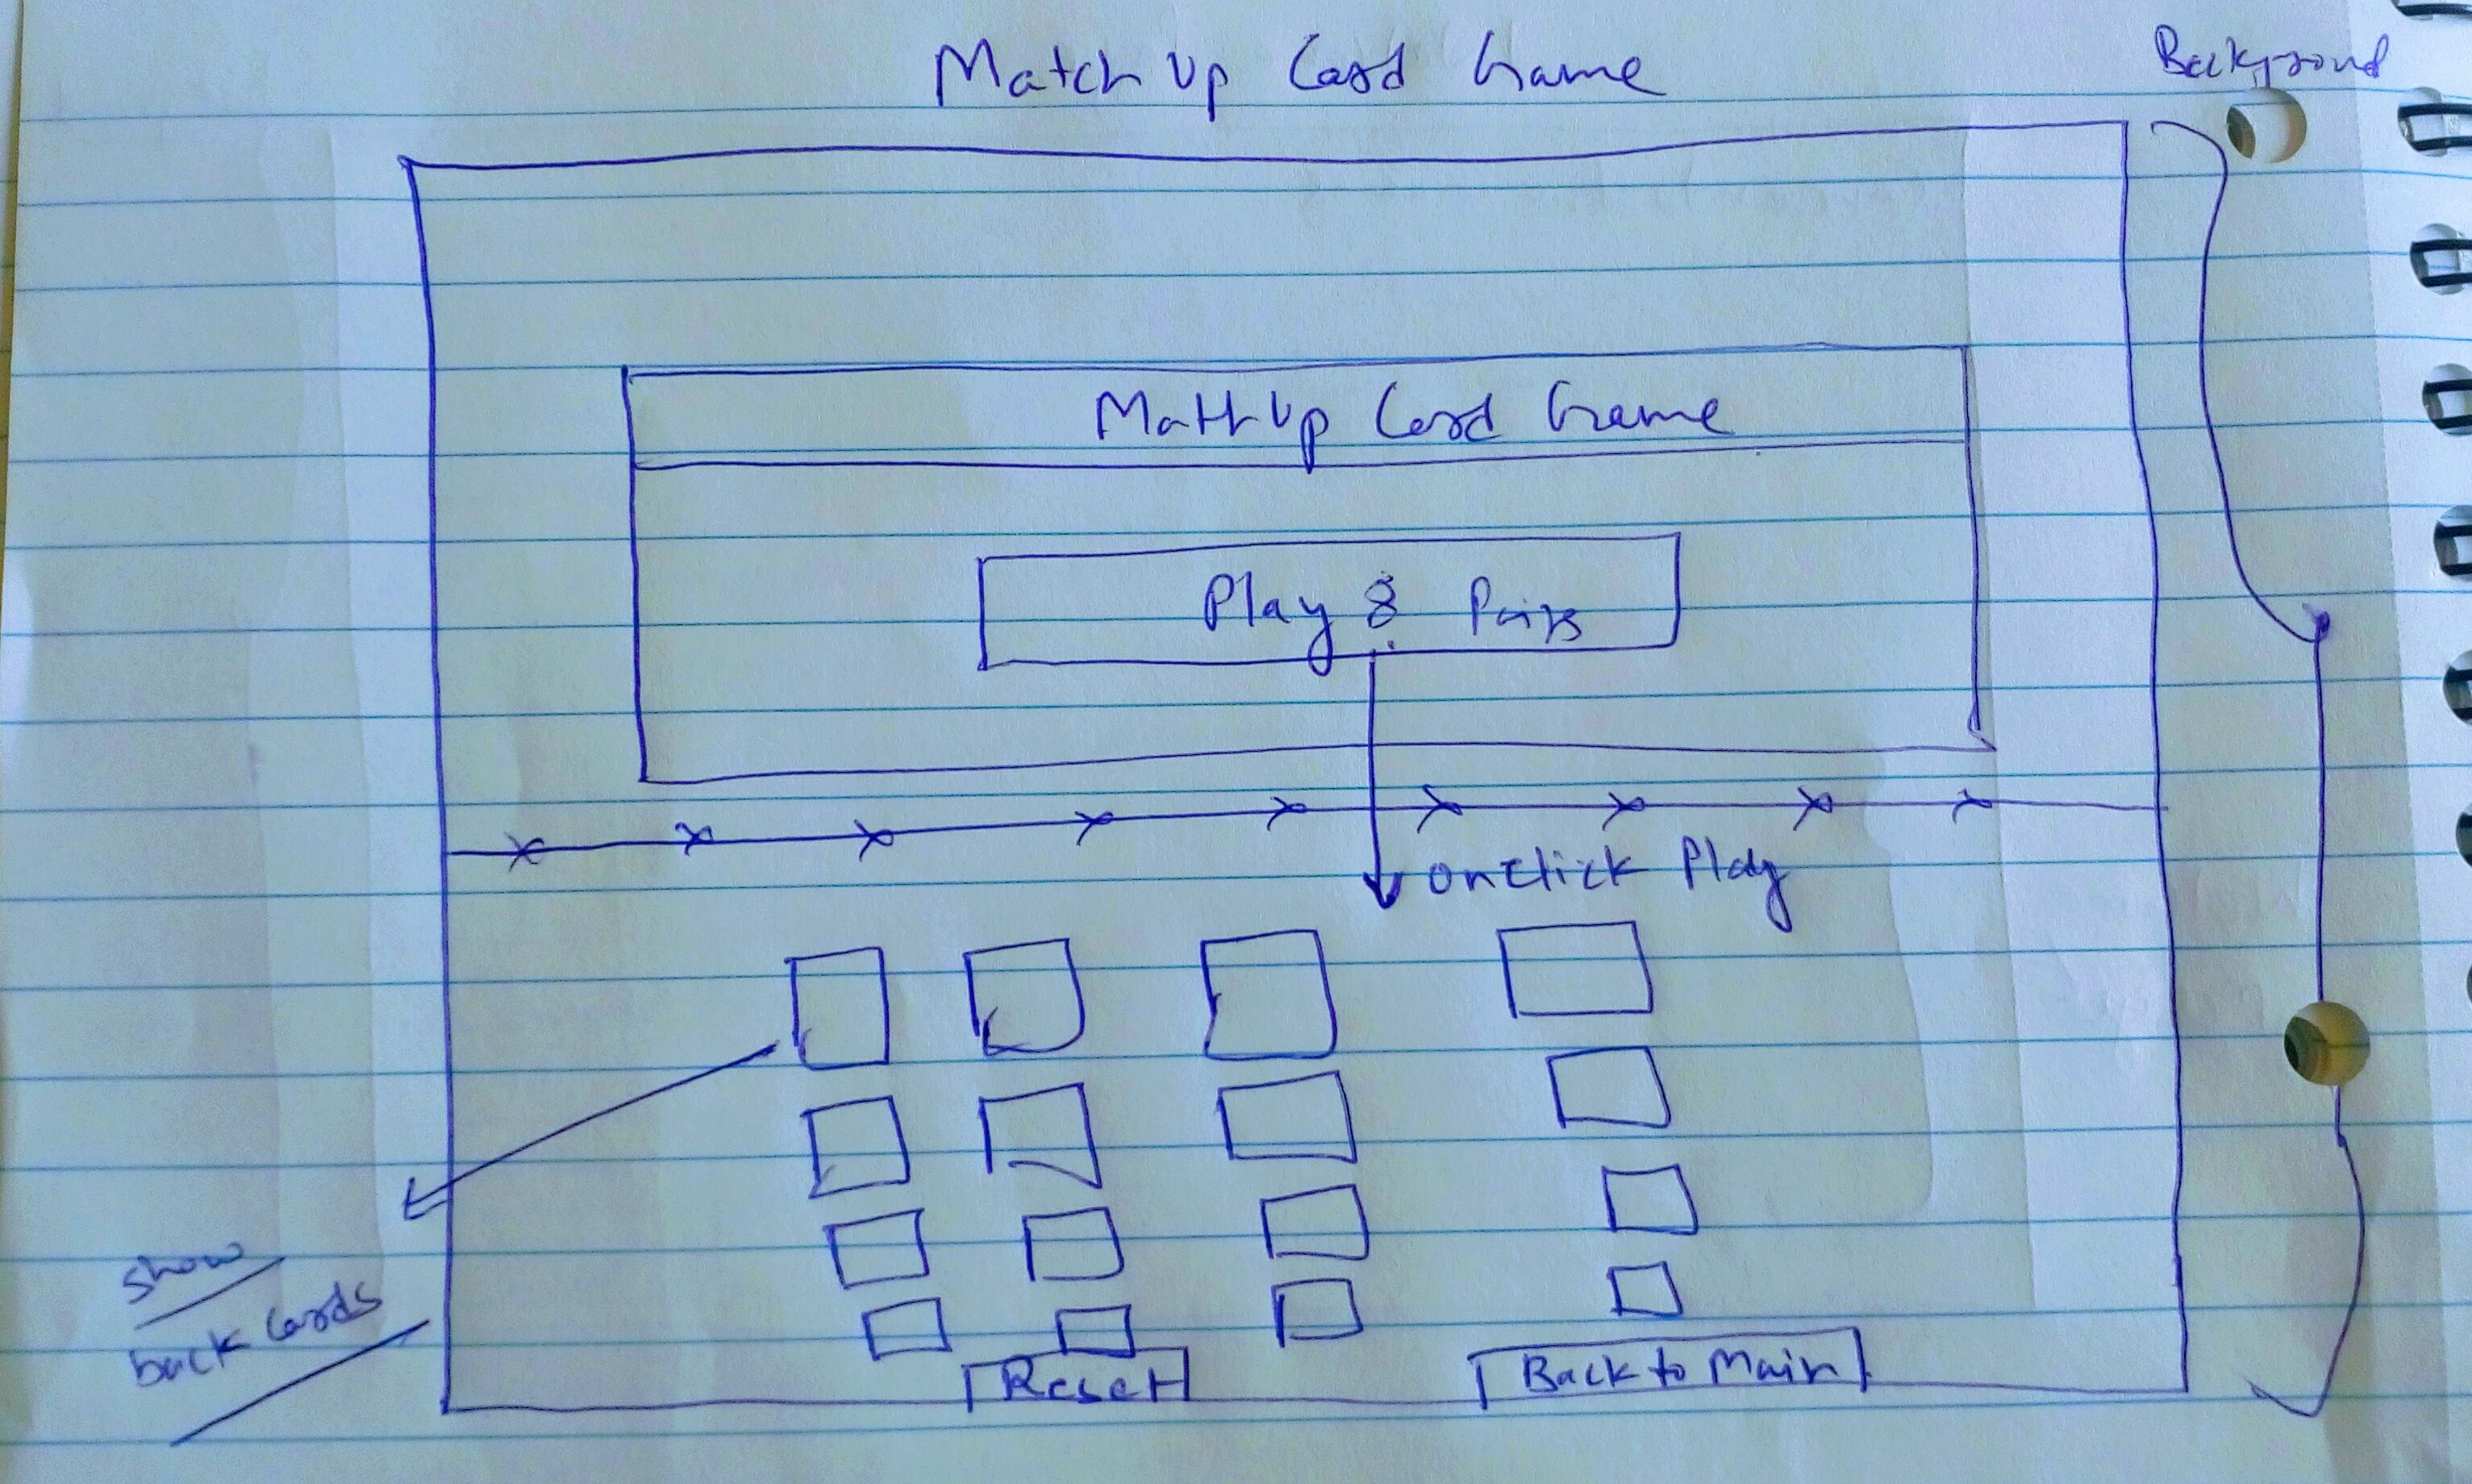 Match Up Card Game
Background
MatchUp Card Game
Play 8 Pairs
onclick Play
show
back Cards
Reset
Back to Main